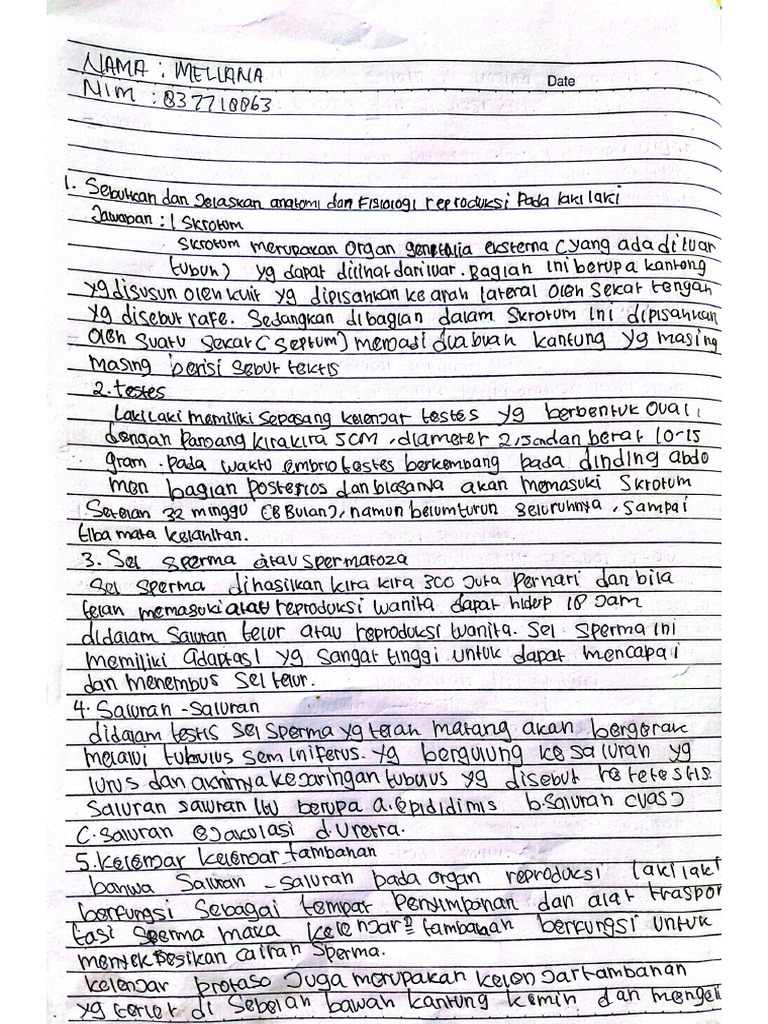 NAMA : MELLANA
Date
NIM : 837710863
1. Sebutkan dan Jelaskan anatomi dan Fisiologi reproduksi Pada laki laki
Jawaban : 1 Skrotum
Skrotum merupakan Organ genetalia eksterna (yang ada diluar
tubuh) yg dapat dilihat dari luar. Bagian ini berupa kantong
yg disusun oleh kulit yg dipisahkan ke arah lateral oleh Sekat tengah
yg disebut rafe. Sedangkan dibagian dalam Skrotum ini dipisahkan
oleh Suatu Sekat (Septum) menjadi dua buah kantung yg masing
masing berisi Sebut tektis
2. testes
Laki laki memiliki Sepasang kelenjar testes yg berbentuk Oval,
dengan Panjang kira kira 5cm, diameter 2,5cm dan berat 10-15
gram. Pada waktu embrio testes berkembang pada dinding abdo
men bagian posterios dan biasanya akan memasuki Skrotum
Setelah 32 minggu (8 Bulan), namun belum turun Seluruhnya, Sampai
tiba mata kelahiran.
3. Sel sperma atau spermatoza
Sel Sperma dihasilkan kira kira 300 Juta Perhari dan bila
telah memasuki alat reproduksi wanita dapat hidup 18 Jam
didalam Saluran telur atau reproduksi wanita. Sel Sperma ini
memiliki adaptasi yg Sangat tinggi untuk dapat mencapai
dan menembus Sel telur.
4. Saluran - Saluran
didalam testis Sel Sperma yg telah matang akan bergerak
melawi tubulus Seminiferus. yg bergulung ke saluran yg
lurus dan akhirnya ke Jaringan tubulus yg disebut retetestis.
Saluran saluran itu berupa a. Epididimis b. Saluran (Vas)
C. Saluran eJakulasi d. Uretra.
5. Kelenjar kelenJar tambahan
bahwa Saluran - saluran pada organ reproduksi laki laki
berfungsi Sebagai tempat Penyimpanan dan alat traspor
tasi Sperma maka kelenjar2 tambahan berfungsi untuk
menyekresikan cairan Sperma.
kelenjar protase Juga merupakan kelenjar tambahan
yg terlet di Sebelah bawah kantung kemin dan mengeli